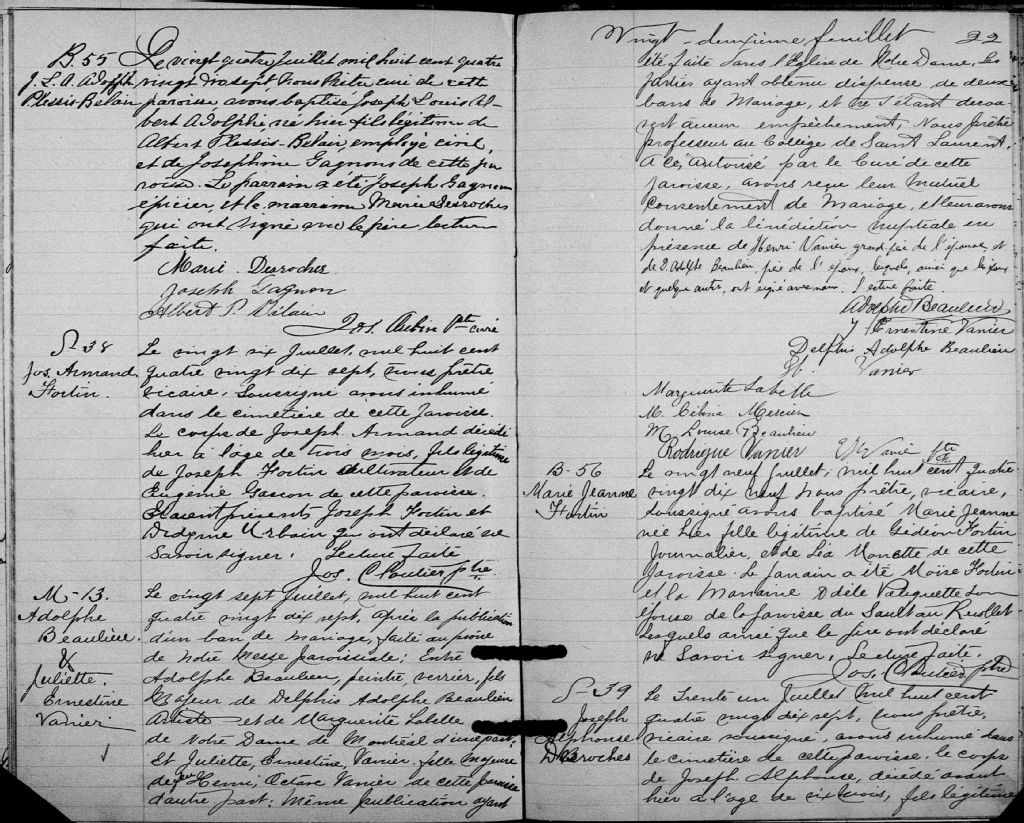 B. 55
J. L. A. Adolph
Plessis Belair
Le vingt quatre juillet mil huit cent quatre
vingt dix sept, nous Prêtre curé de cette
paroisse avons baptisé Joseph Louis Al-
bert Adolphe, né hier fils légitime de
Albert Plessis-Belair, employé civil,
et de Josephine Gagnon de cette pa
roisse. Le parrain a été Joseph Gagnon
epicier et la marraine Marie Desroches
qui ont signé avec le père lecture
faite.
Marie Desroches
Joseph Gagnon
Albert P. Bélair
Jos. Aubin Ptre curé
S-38
Jos. Armand
Fortin.
Le vingt six Juillet, mil huit cent
quatre vingt dix sept, nous prêtre
vicaire, soussigné avons inhumé
dans le cimetière de cette Paroisse.
Le corps de Joseph Armand décédé
hier à l'age de trois mois, fils légitime
de Joseph Fortin cultivateur et de
Eugénie Gascon de cette paroisse.
Etaient présents Joseph Fortin et
Urbain qui ont déclaré ne
Savoir signer. Lecture faite
Jos. Cloutier ptre.
M-13.
Adolphe
Beaulieu.
&
Juliette.
Ernestine
Vanier.
Le vingt sept Juillet, mil huit cent
quatre vingt dix sept, après la publication
d'un ban de mariage, faite au prône
de notre Messe paroissiale; Entre
Adolphe Beaulieu, peintre verrier, fils
Majeur de Delphis Adolphe Beaulieu
Artiste et de Marguerite Labelle
de Notre Dame de Montréal d'une part;
Et Juliette, Ernestine, Vanier fille majeure
de feu Henri, Octave Vanier de cette paroisse
d'autre part; Même publication ayant
Vingt-deuxième feuillet 22
été faite dans l'Eglise de Notre Dame, les
parties ayant obtenu dispense de deux
bans de Mariage, et ne s'étant decou
vert aucun empêchement, Nous Prêtre
professeur au Collège de Saint Laurent,
à ce, autorisé par le Curé de cette
paroisse, avons reçu leur mutuel
consentement de Mariage, et leur avons
donné la bénédiction nuptiale en
présence de Henri Vanier grand père de l'épouse, et
de D. Adolphe Beaulieu, père de l'époux, lesquels, ainsi que les époux
et quelques autres, ont signé avec nous. Lecture faite.
Adolphe Beaulieu
J Ernestine Vanier
Delphis Adolphe Beaulieu
H. Vanier
Marguerite Labelle
M. Célina Mercier
M. Louise Beaulieu
Rodrigue Vanier Vanier ptre
B-56
Marie Jeanne
Fortin
Le vingt neuf juillet, mil huit cent quatre
vingt dix neuf nous prêtre, vicaire,
soussigné avons baptisé Marie Jeanne
née hier fille légitime de Gédéon Fortin
Journalier, et de Léa Monette de cette
Paroisse. Le parrain a été Moïse Fortin
et la Marraine Odèle Paquette son
épouse de la paroisse du Sault au Recollet
Lesquels ainsi que le père ont déclaré
ne Savoir signer, Lecture faite.
Jos. Cloutier ptre
S-39
Joseph
Alphonse
Desroches
Le trente un Juillet mil huit cent
quatre vingt dix sept, nous prêtre,
vicaire soussigné, avons inhumé dans
le cimetière de cette paroisse. le corps
de Joseph Alphonse, décédé avant
hier à l'age de six mois, fils légitime